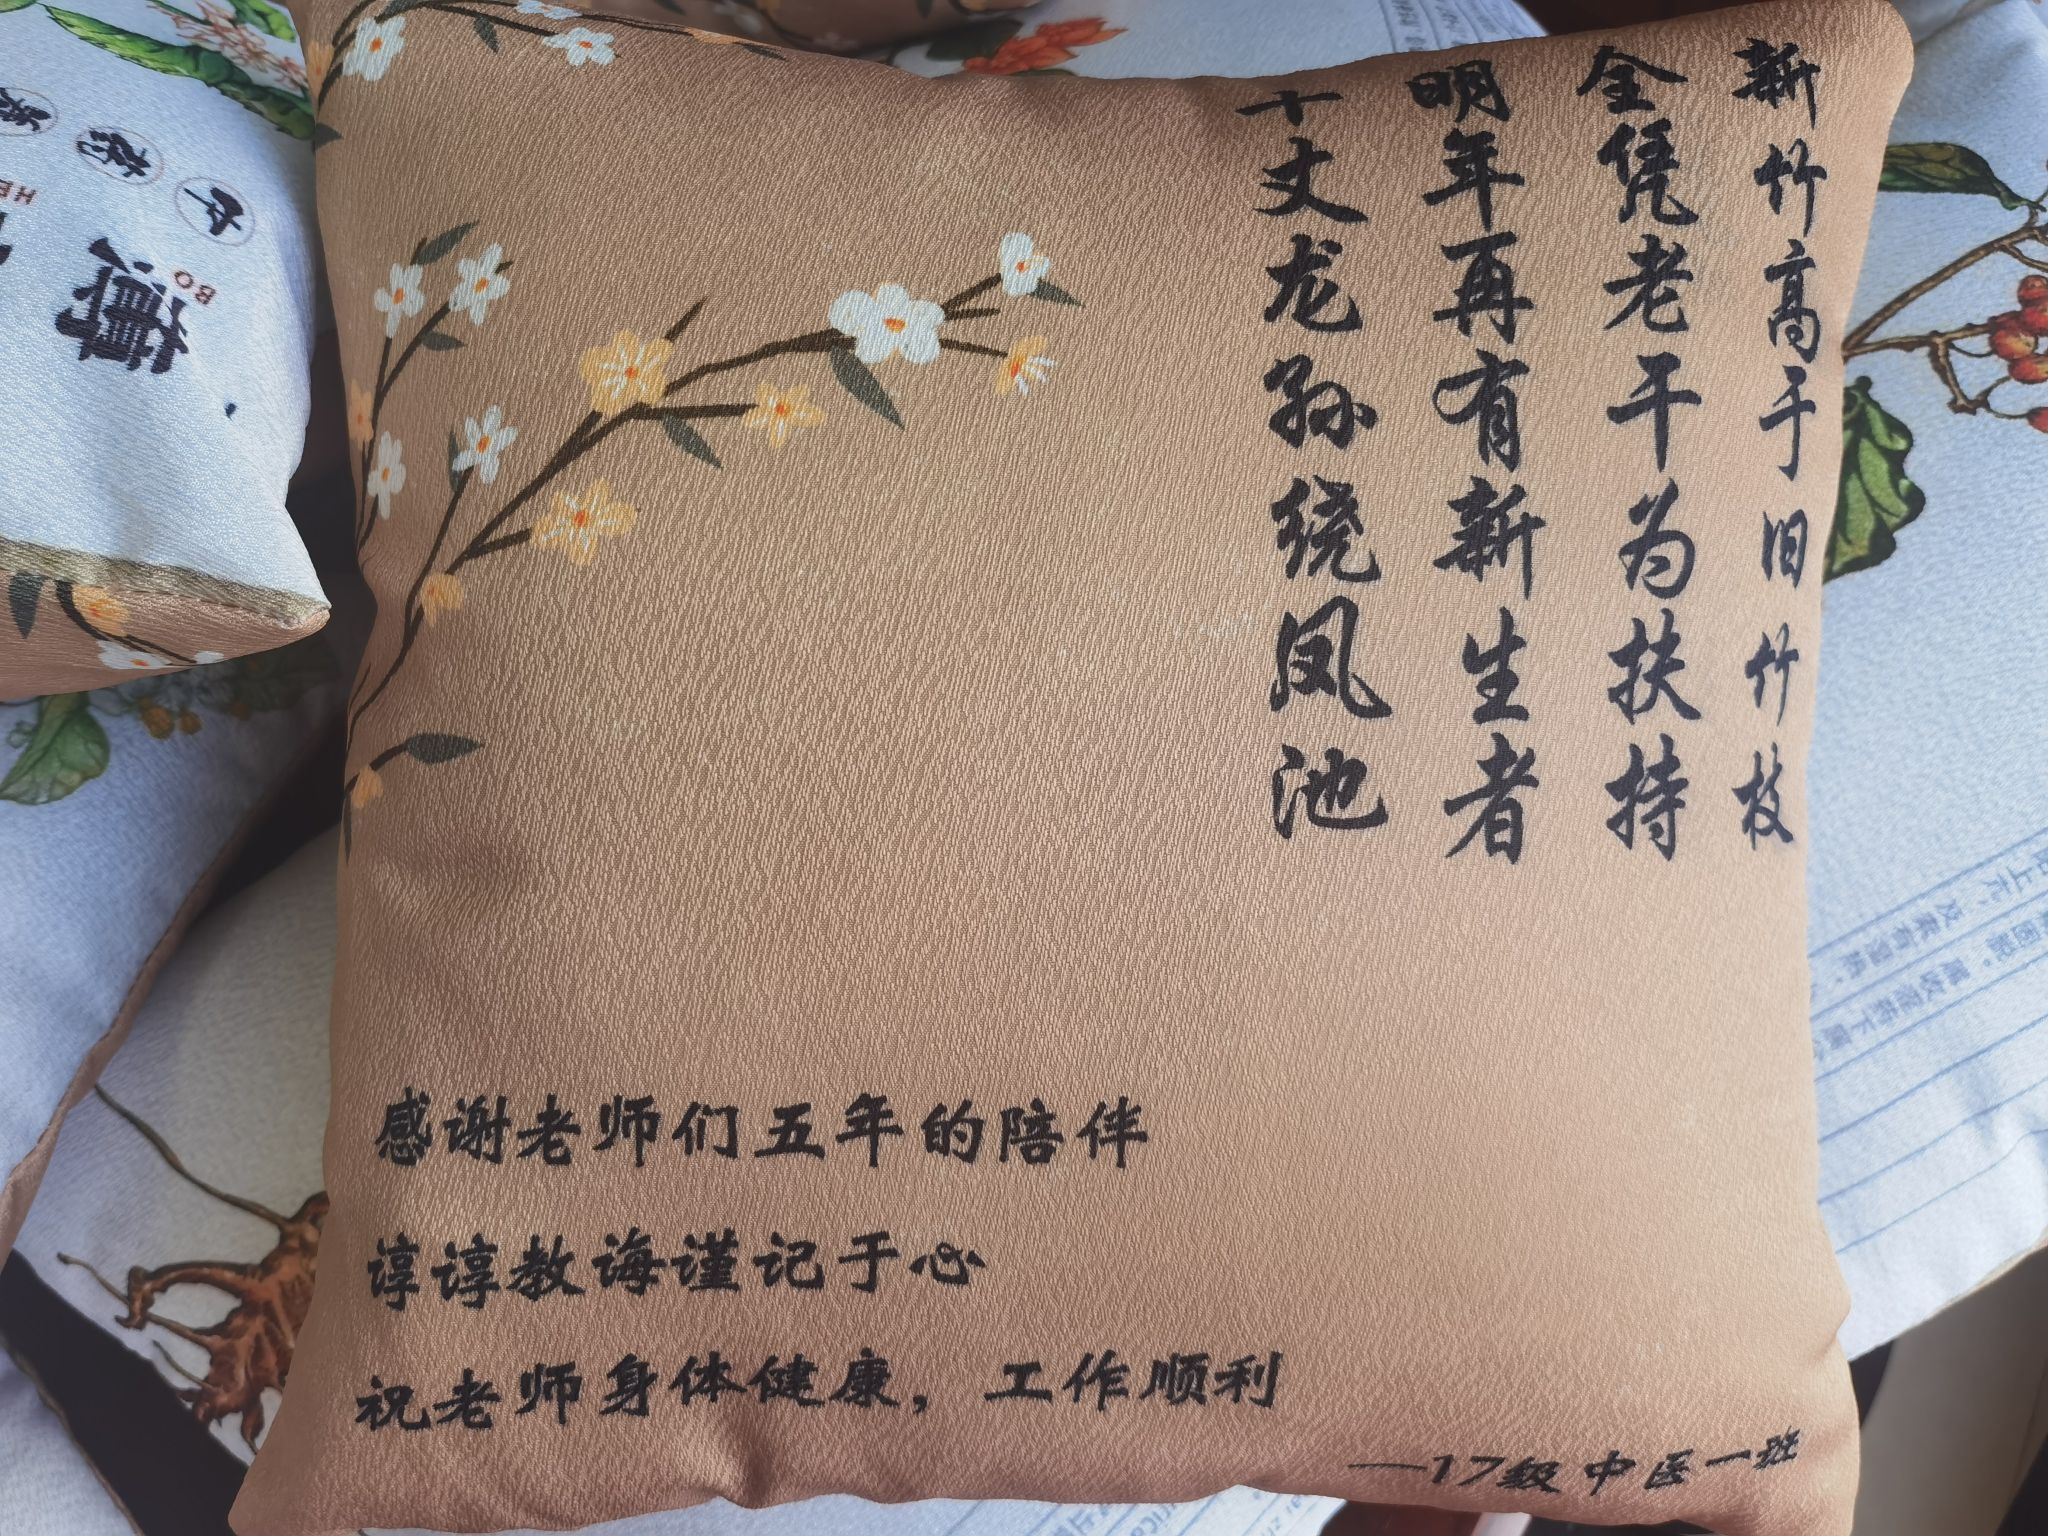 新竹高于旧竹枝
全凭老干为扶持
明年再有新生者
十丈龙孙绕凤池
感谢老师们五年的陪伴
谆谆教诲谨记于心
祝老师身体健康，工作顺利
——17级中医一班
BO